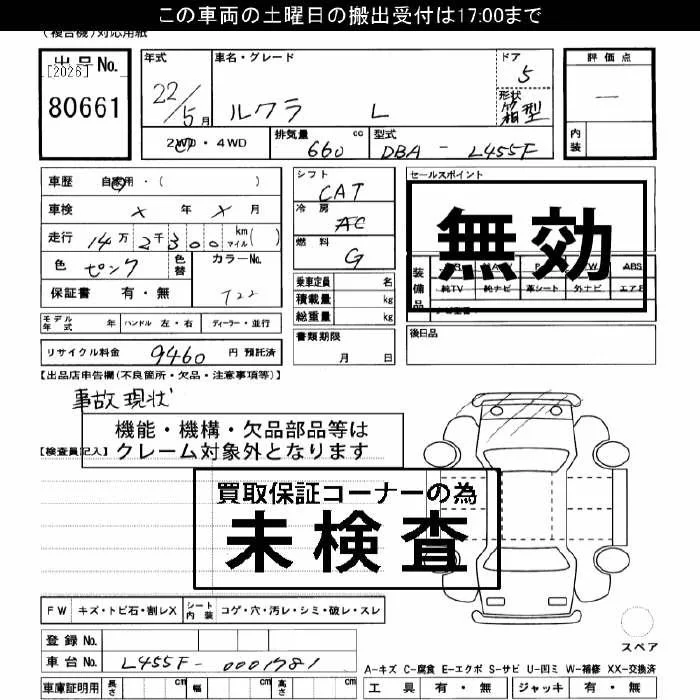 この車両の土曜日の搬出受付は17:00まで
(複合機)対応用紙
出品No.
[2026]
80661
年式
22/5月
車名・グレード
ルクラ L
ドア
5
形状
箱型
評価点
—
内装
2WD・4WD
排気量 660 cc
型式 DBA - L455F
車歴 自家用・( )
車検 X 年 X 月
走行 14万2千300 km マイル( )
色 ピンク 色替
カラーNo.
T22
保証書 有・無
シフト
CAT
冷房
AC
燃料
G
乗車定員 名
積載量 kg
総重量 kg
セールスポイント
無効
装備品
ABS
純TV 純ナビ 革シート 外ナビ エアB
モデル年式 年 ハンドル 左・右 ディーラー・並行
書類期限
月 日
後日品
リサイクル料金 9460 円 預託済
【出品店申告欄(不良箇所・欠品・注意事項等)】
事故現状
機能・機構・欠品部品等は
クレーム対象外となります
【検査員記入】
買取保証コーナーの為
未検査
FW キズ・トビ石・割レX シート内装 コゲ・穴・汚レ・シミ・破レ・スレ
スペア
登録No.
車台No. L455F - 0001781
A-キズ C-腐食 E-エクボ S-サビ U-凹ミ W-補修 XX-交換済
車庫証明用 長さ cm 幅 cm 高さ cm
工具 有・無 ジャッキ 有・無